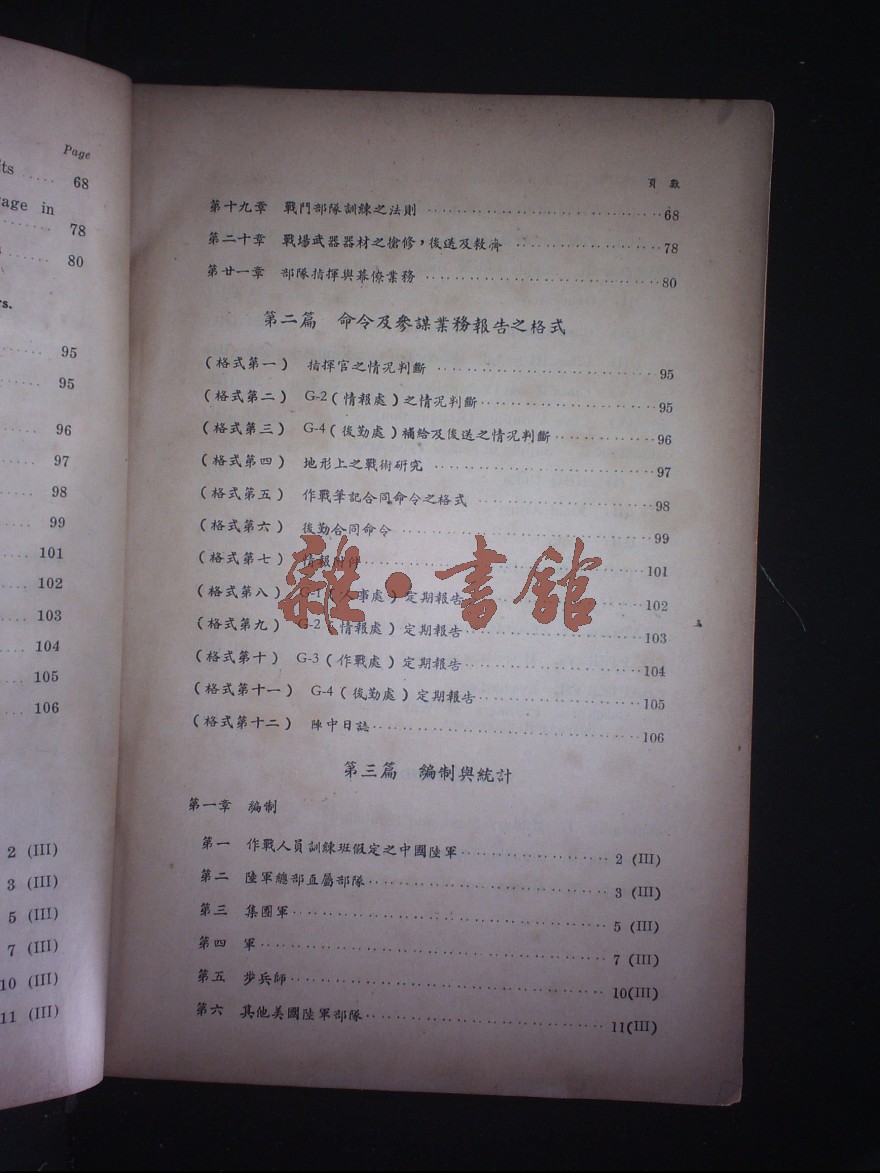 Page
68
age in
78
80
95
95
96
97
98
99
101
102
103
104
105
106
2 (III)
3 (III)
5 (III)
7 (III)
10 (III)
11 (III)
頁數
第十九章 戰鬥部隊訓練之法則 68
第二十章 戰場武器器材之搶修，後送及救濟 78
第廿一章 部隊指揮與幕僚業務 80
第二篇 命令及參謀業務報告之格式
(格式第一) 指揮官之情況判斷 95
(格式第二) G-2(情報處)之情況判斷 95
(格式第三) G-4(後勤處)補給及後送之情況判斷 96
(格式第四) 地形上之戰術研究 97
(格式第五) 作戰筆記合同命令之格式 98
(格式第六) 後勤合同命令 99
(格式第七) 情報附件 101
(格式第八) G-1(人事處)定期報告 102
(格式第九) G-2(情報處)定期報告 103
(格式第十) G-3(作戰處)定期報告 104
(格式第十一) G-4(後勤處)定期報告 105
(格式第十二) 陣中日誌 106
雜·書館
第三篇 編制與統計
第一章 編制
第一 作戰人員訓練班假定之中國陸軍 2 (III)
第二 陸軍總部直屬部隊 3 (III)
第三 集團軍 5 (III)
第四 軍 7 (III)
第五 步兵師 10(III)
第六 其他美國陸軍部隊 11(III)